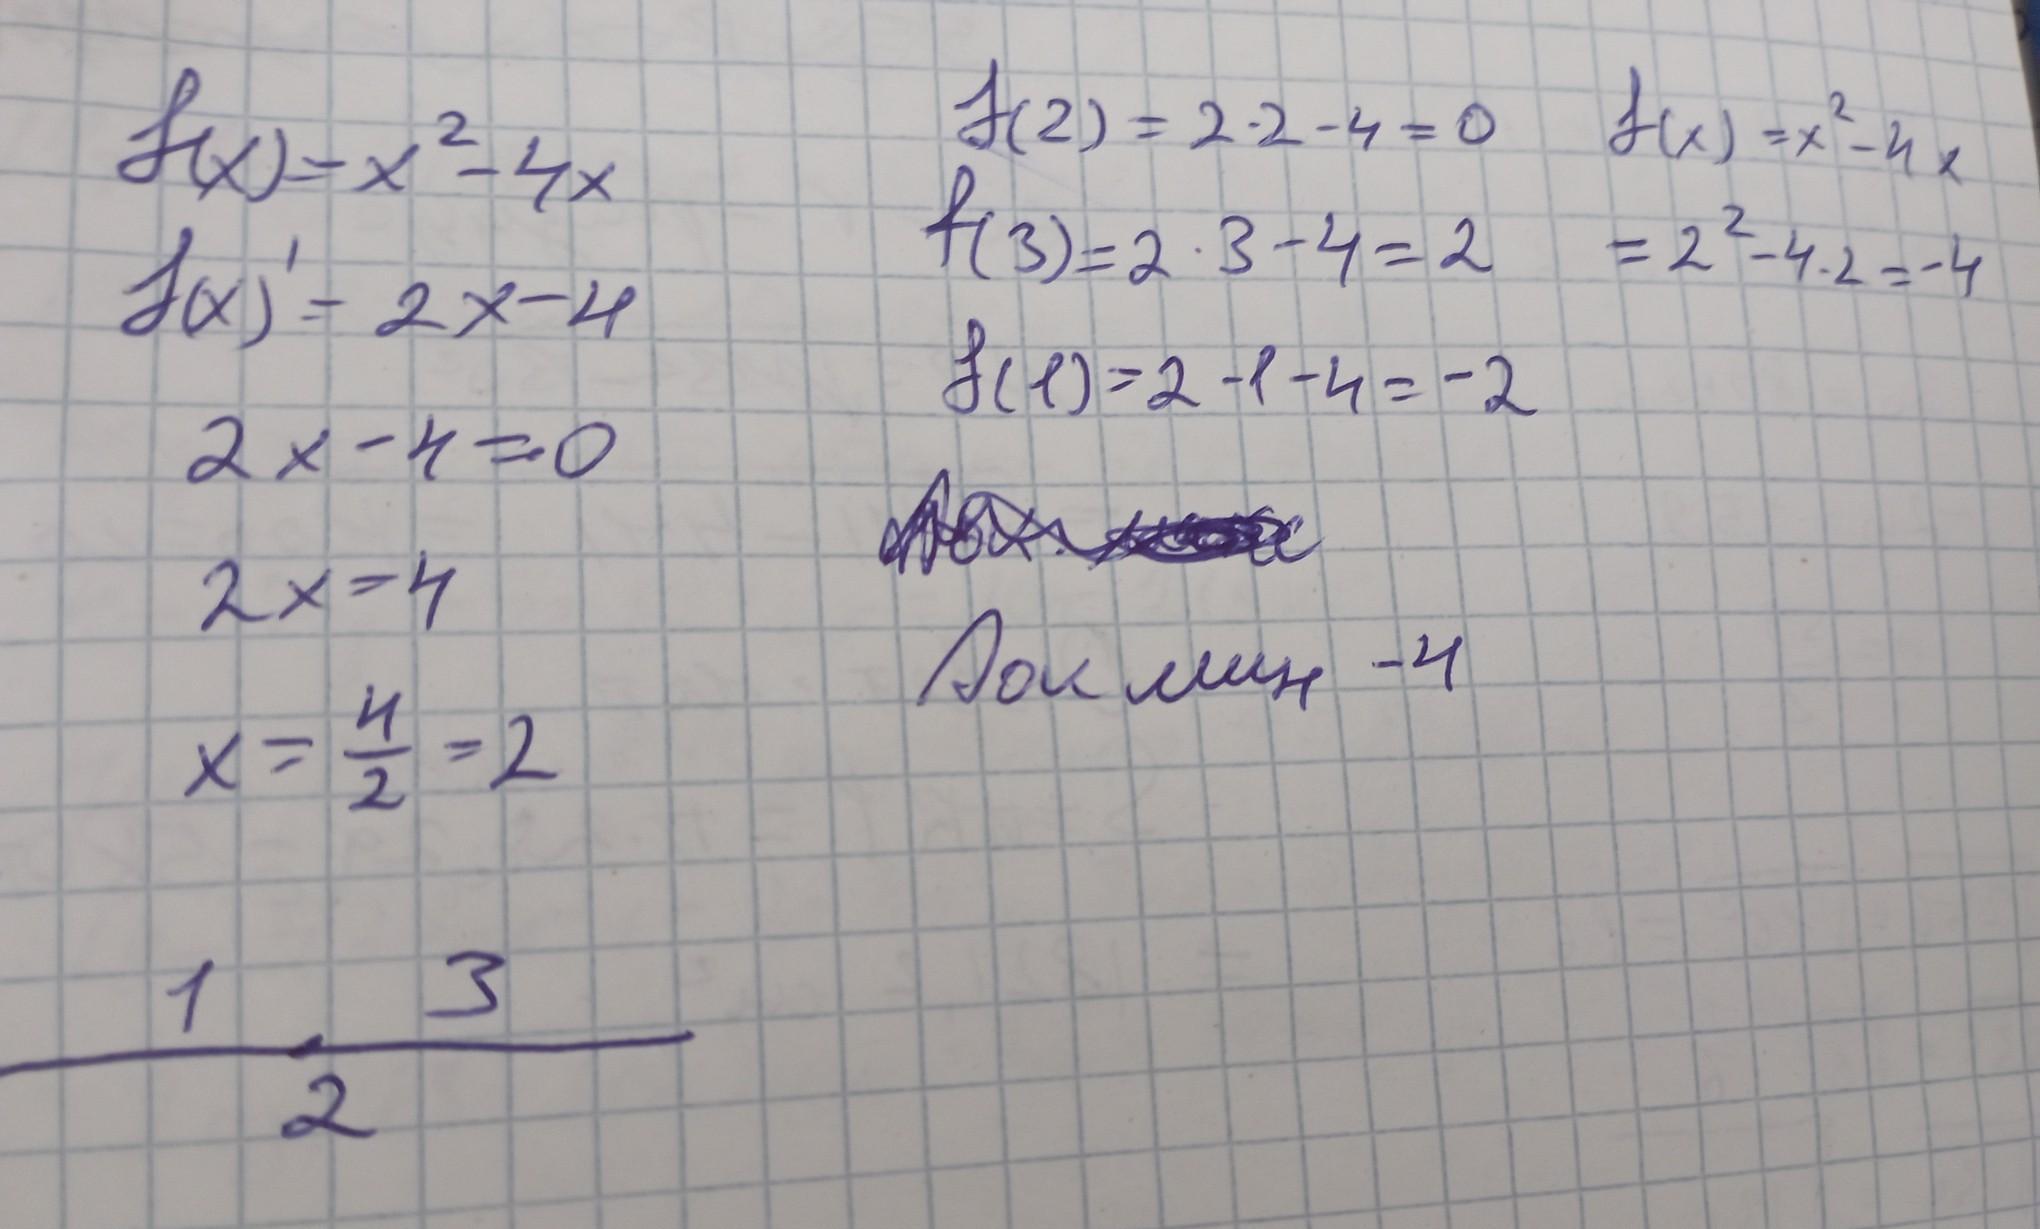 f(x) = x² - 4x
f(x)' = 2x - 4
2x - 4 = 0
2x = 4
x = 4/2 = 2
1 3
2
f(2) = 2·2 - 4 = 0
f(3) = 2·3 - 4 = 2
f(1) = 2 - 1 - 4 = -2
Лок мин -4
f(x) = x² - 4x
= 2² - 4·2 = -4